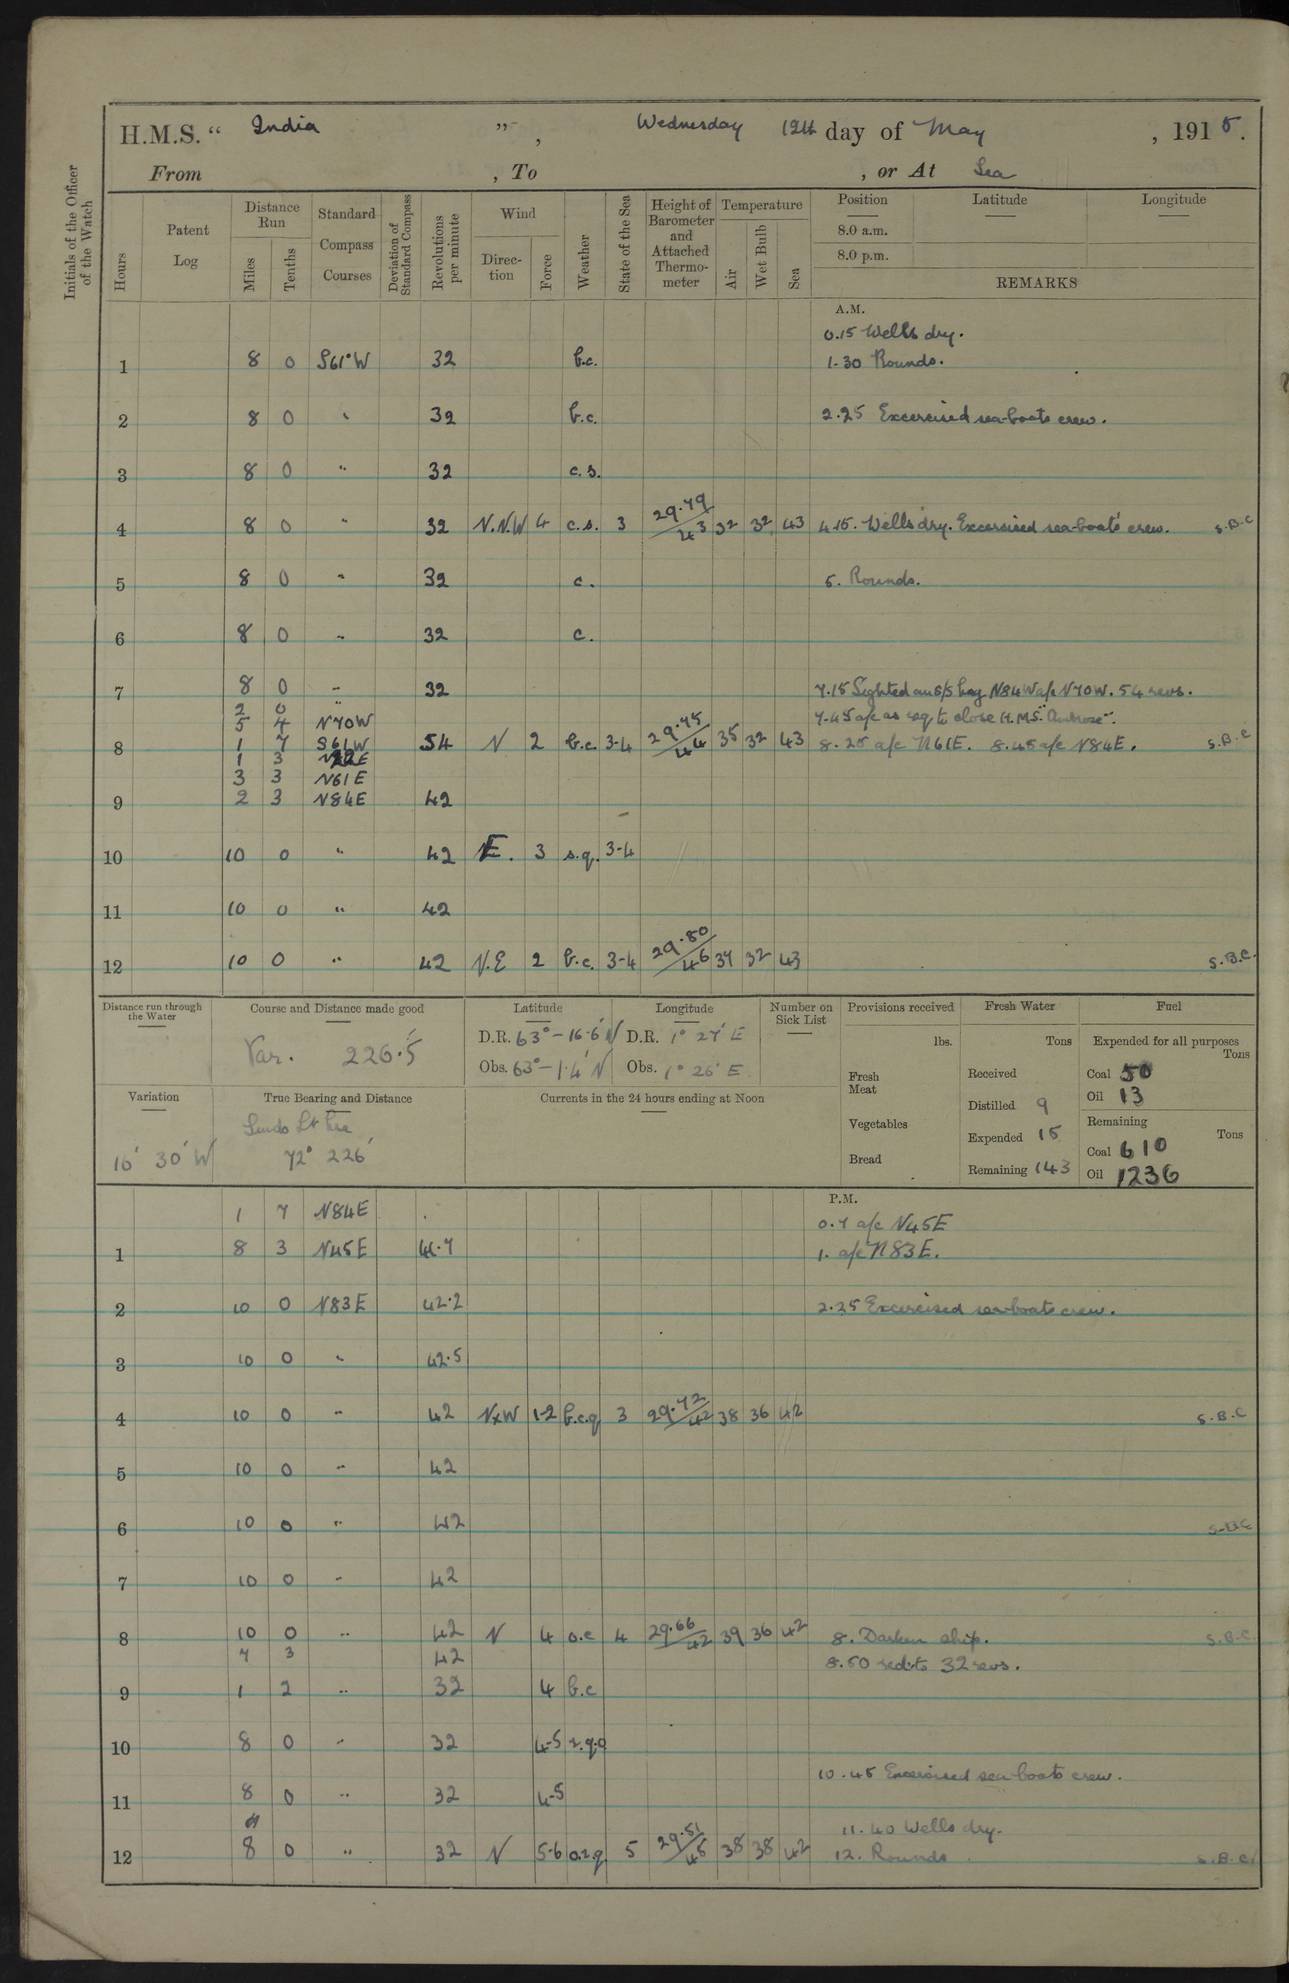 H.M.S. “ India ” , Wednesday 12th day of May , 1915.
From , To , or At Sea
Initials of the Officer of the Watch
Hours
Patent Log
Distance Run
Miles
Tenths
Standard Compass Courses
Deviation of Standard Compass
Revolutions per minute
Wind
Direction
Force
Weather
State of the Sea
Height of Barometer and Attached Thermometer
Temperature
Air
Wet Bulb
Sea
Position Latitude Longitude
8.0 a.m.
8.0 p.m.
REMARKS
A.M.
0.15 Wells dry.
1 8 0 S61°W 32 b.c. 1-30 Rounds.
2 8 0 " 32 b.c. 2.25 Excercised sea-boats crew.
3 8 0 " 32 c.s.
4 8 0 " 32 N.N.W 4 c.s. 3 29.79/43 32 32 43 4.15. Wells dry. Excercised sea-boats crew. S.B.C
5 8 0 " 32 c. 5. Rounds.
6 8 0 " 32 c.
7 8 0 " 32 7.15 Sighted an S/S bag N84W a/c N70W. 54 revs.
2 0 "
5 4 N70W 7.45 a/c as req to close H.M.S. "Ambrose".
8 1 7 S61W 54 N 2 b.c. 3-4 29.75/44 35 32 43 8.25 a/c N61E. 8.45 a/c N84E. S.B.C
1 3
3 3 N61E
9 2 3 N84E 42
10 10 0 " 42 NE. 3 s.q. 3-4
11 10 0 " 42
12 10 0 " 42 N.E 2 b.c. 3-4 29.80/46 37 32 43 S.B.C.
Distance run through the Water
Course and Distance made good
Var. 226.5
Latitude
D.R. 63°-16.6' N
Obs. 63°-1.4' N
Longitude
D.R. 1° 27' E
Obs. 1° 26' E
Number on Sick List
Provisions received
lbs.
Fresh Meat
Vegetables
Bread
Fresh Water
Tons
Received
Distilled 9
Expended 15
Remaining 143
Fuel
Expended for all purposes
Tons
Coal 50
Oil 13
Remaining
Tons
Coal 610
Oil 1236
Variation
16° 30' W
True Bearing and Distance
72° 226'
Currents in the 24 hours ending at Noon
P.M.
1 7 N84E 0.7 a/c N45E
1 8 3 N45E 41.7 1. a/c N83E.
2 10 0 N83E 42.2 2.25 Excercised sea-boats crew.
3 10 0 " 42.5
4 10 0 " 42 NxW 1-2 b.c.q 3 29.72/42 38 36 42 S.B.C
5 10 0 " 42
6 10 0 " 42 S.B.C
7 10 0 " 42
8 10 0 " 42 N 4 o.c 4 29.66/42 39 36 42 8. Darken ship. S.B.C.
7 3 42 8.50 red. to 32 revs.
9 1 2 " 32 4 b.c
10 8 0 " 32 4-5
10.45 Excercised sea-boats crew.
11 8 0 " 32 4-5
11.40 Wells dry.
12 8 0 " 32 N 5-6 o.r.q. 5 29.51/45 38 38 42 12. Rounds. S.B.C.